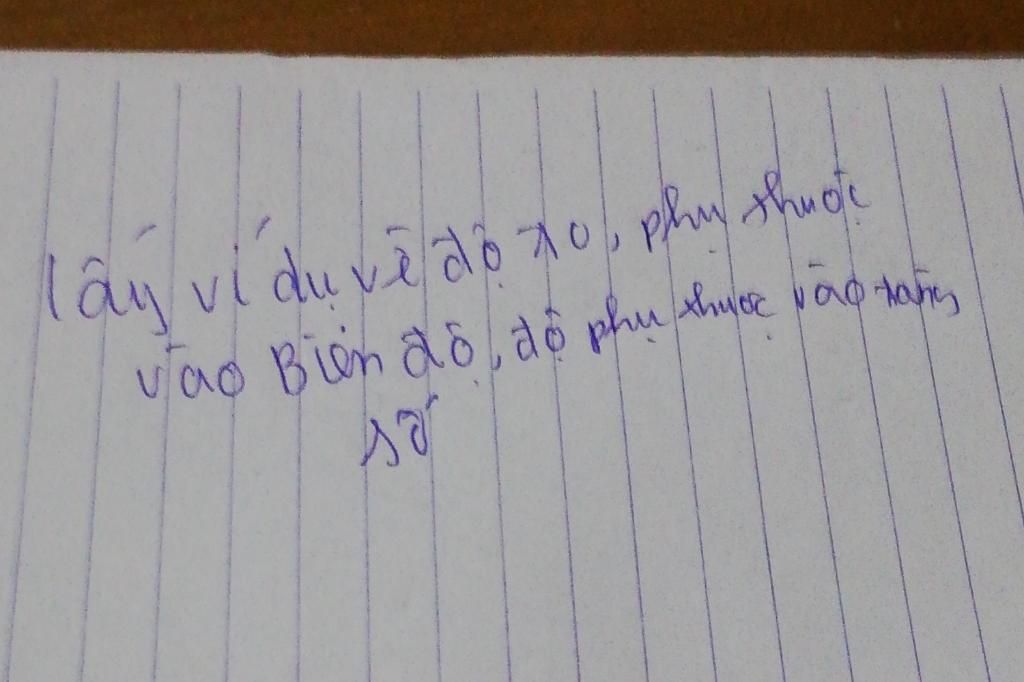 lấy ví dụ về độ to, phụ thuộc
vào Biên độ, độ phụ thuộc vào tần
số